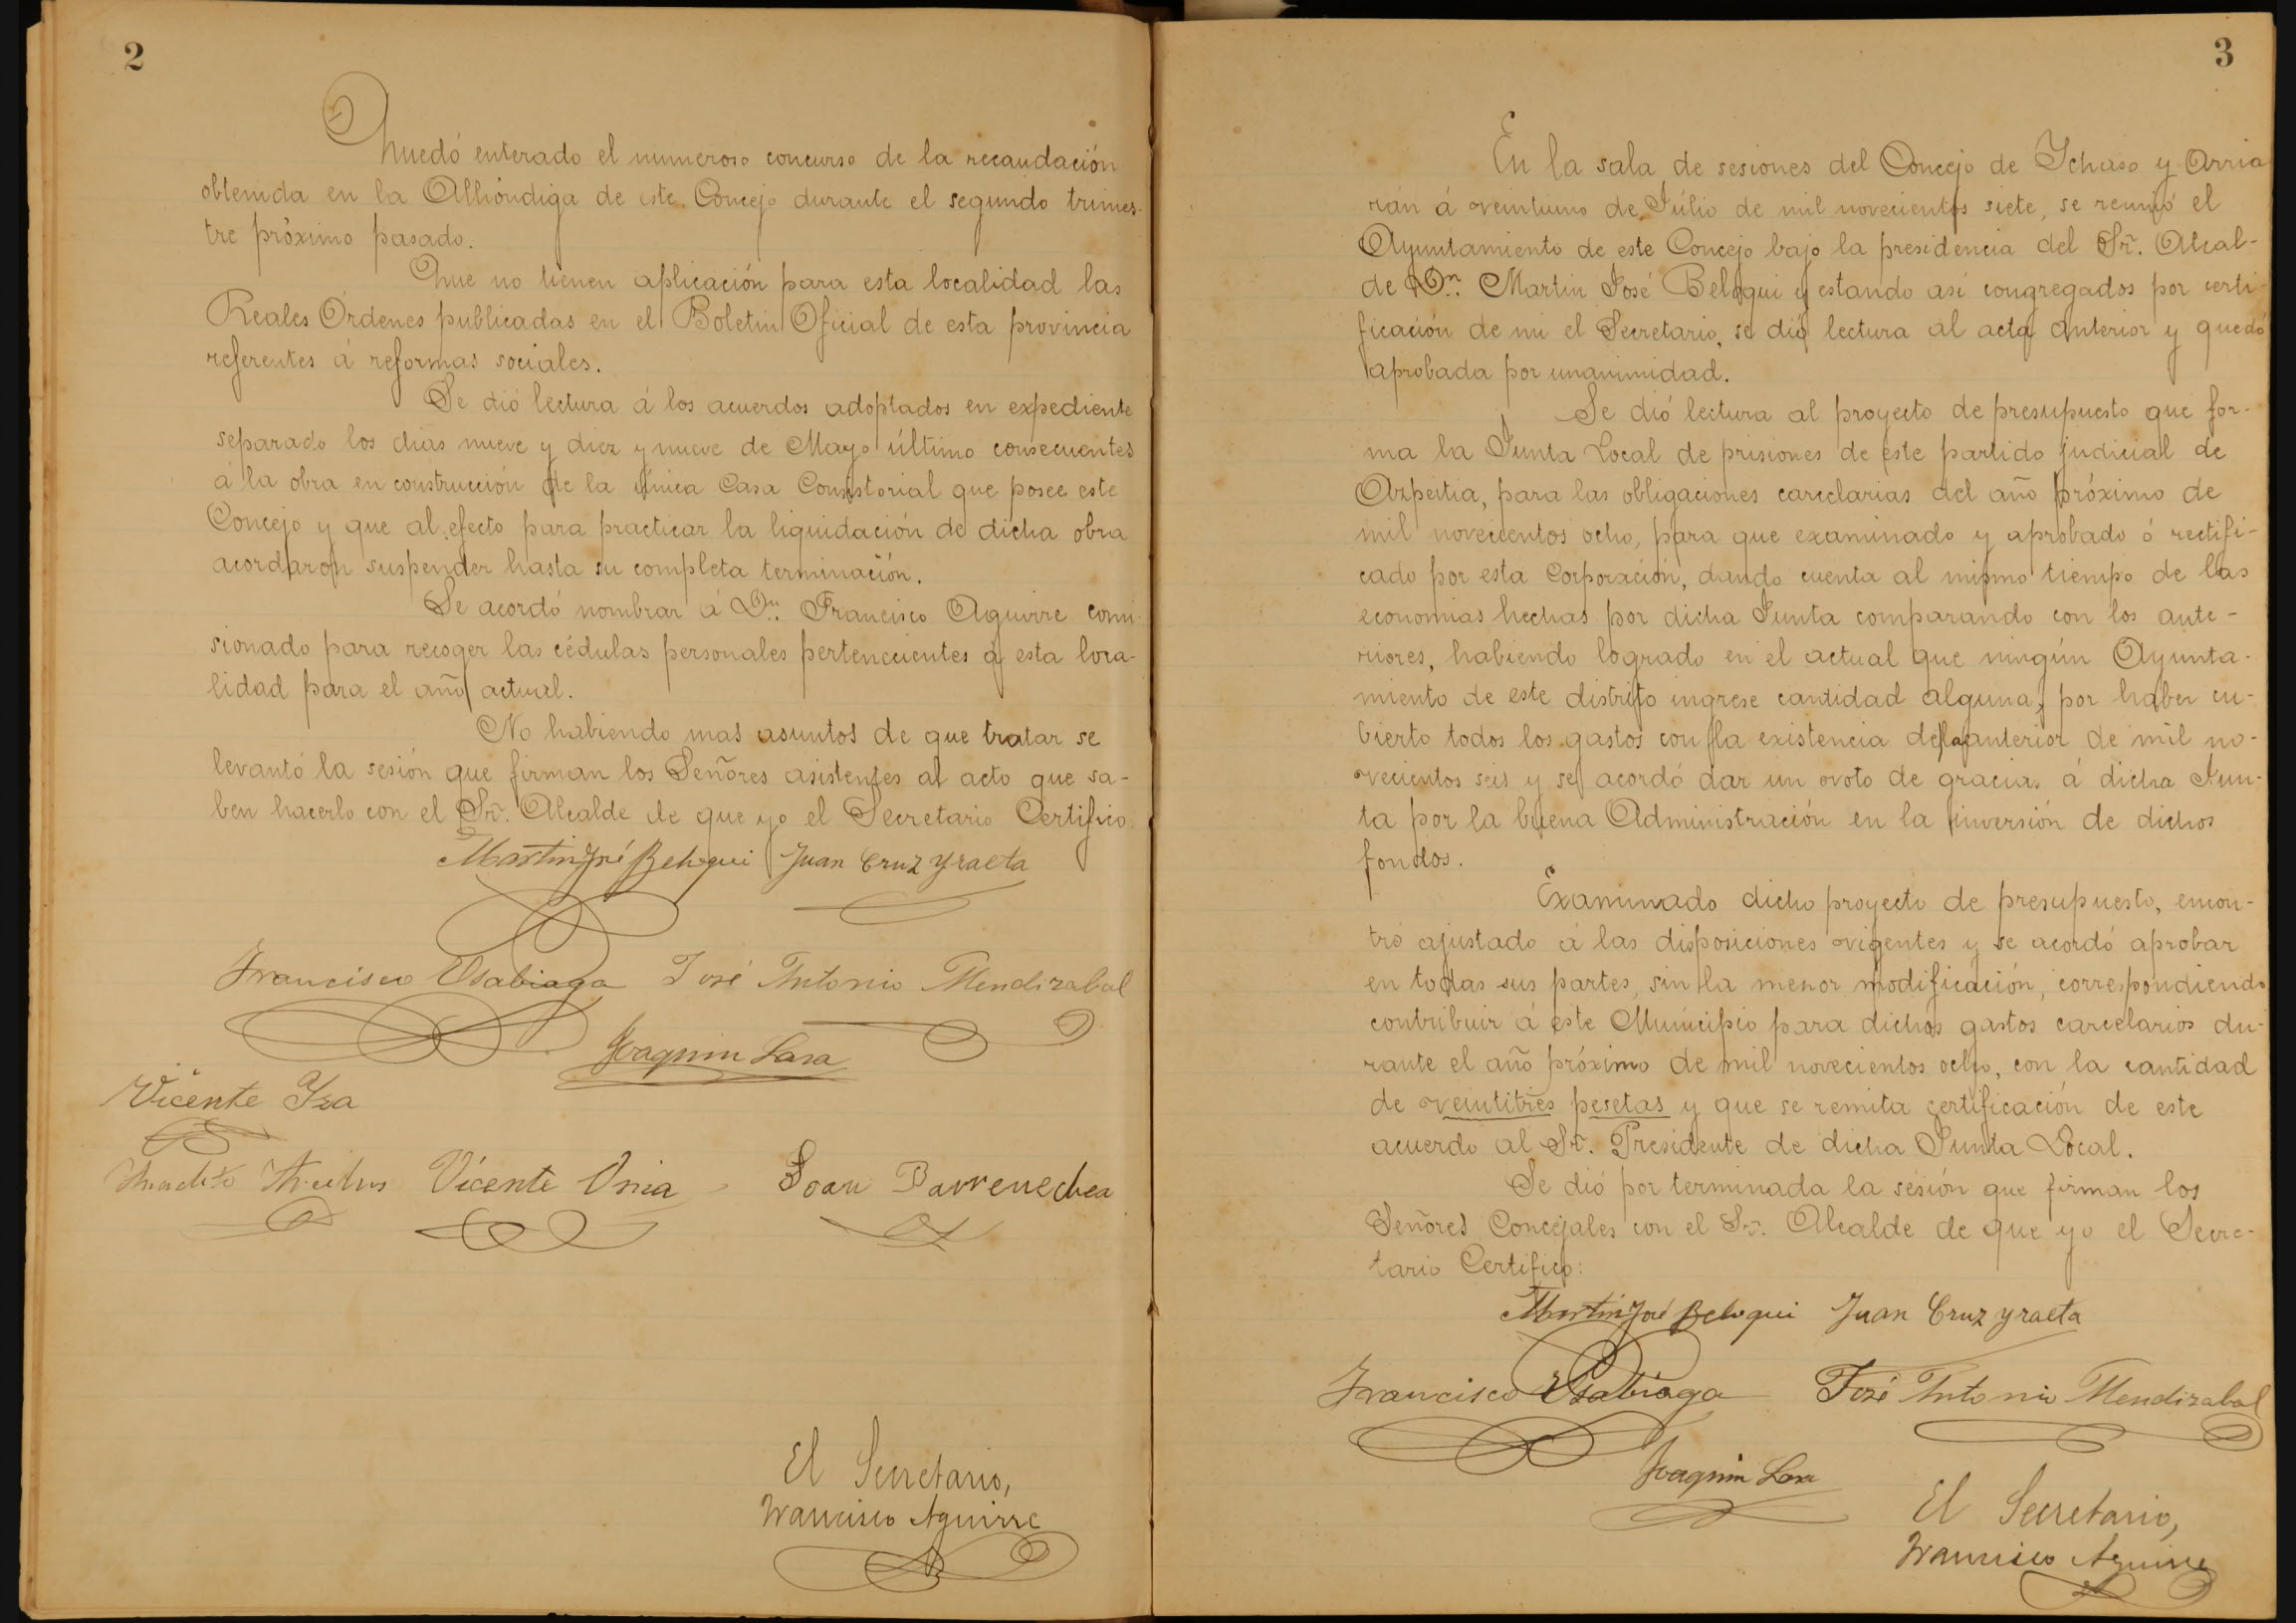 2
Quedó enterado el numeroso concurso de la recaudación
obtenida en la Alhóndiga de este Concejo durante el segundo trimes-
tre próximo pasado.
Que no tienen aplicación para esta localidad las
Reales Órdenes publicadas en el Boletin Oficial de esta provincia
referentes á reformas sociales.
Se dió lectura á los acuerdos adoptados en expediente
separado los dias nueve y diez y nueve de Mayo último consecuentes
á la obra en construcción de la única Casa Consistorial que posee este
Concejo y que al efecto para practicar la liquidación de dicha obra
acordaron suspender hasta su completa terminación.
Se acordó nombrar á Dn. Francisco Aguirre comi-
sionado para recoger las cédulas personales pertenecientes á esta loca-
lidad para el año actual.
No habiendo mas asuntos de que tratar se
levantó la sesión que firman los Señores asistentes al acto que sa-
ben hacerlo con el Sr. Alcalde de que yo el Secretario Certifico.
Martin José Beloqui Juan Cruz Yraeta
Francisco Usabiaga José Antonio Mendizabal
Joaquin Lasa
Vicente
Vicente Joan Barrenechea
El Secretario,
Francisco Aguirre
3
En la sala de sesiones del Concejo de Ichaso y Arria
rán á veintiuno de Júlio de mil novecientos siete, se reunió el
Ayuntamiento de este Concejo bajo la presidencia del Sr. Alcal-
de Dn. Martin José Beloqui y estando asi congregados por certi-
ficación de mi el Secretario, se dió lectura al acta anterior y quedó
aprobada por unanimidad.
Se dió lectura al proyecto de presupuesto que for-
ma la Junta Local de prisiones de este partido judicial de
Azpeitia, para las obligaciones carcelarias del año próximo de
mil novecientos ocho, para que examinado y aprobado ó rectifi-
cado por esta Corporación, dando cuenta al mismo tiempo de las
economias hechas por dicha Junta comparando con los ante-
riores, habiendo logrado en el actual que ningún Ayunta-
miento de este distrito ingrese cantidad alguna, por haber cu-
bierto todos los gastos con la existencia del anterior de mil no-
vecientos seis y se acordó dar un voto de gracias á dicha Jun-
ta por la buena Administración en la inversión de dichos
fondos.
Examinado dicho proyecto de presupuesto, encon-
tró ajustado á las disposiciones vigentes y se acordó aprobar
en todas sus partes, sin la menor modificación, correspondiendo
contribuir á este Municipio para dichos gastos carcelarios du-
rante el año próximo de mil novecientos ocho, con la cantidad
de veintitrés pesetas y que se remita certificación de este
acuerdo al Sr. Presidente de dicha Junta Local.
Se dió por terminada la sesión que firman los
Señores Concejales con el Sr. Alcalde de que yo el Secre-
tario Certifico:
Martin José Beloqui Juan Cruz Yraeta
Francisco Usabiaga José Antonio Mendizabal
Joaquin Lasa
El Secretario,
Francisco Aguirre